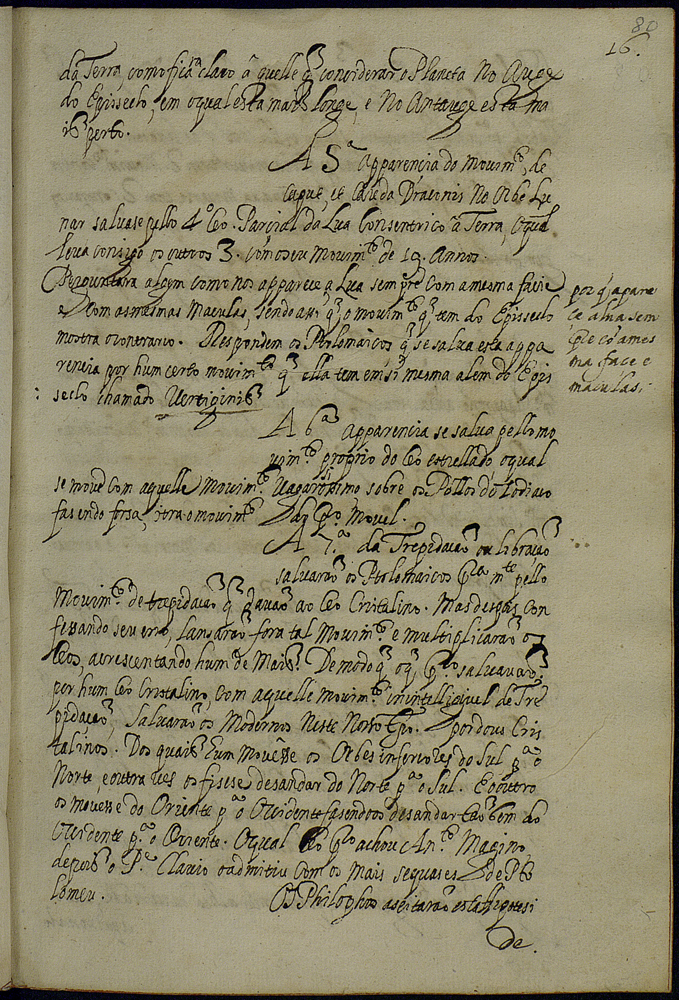 80
16.
da Terra, como fica claro â quelle q̃ considerar o Planeta No Auge
do Episseclo, em o qual está mais longe, e No Antauge está ma
is perto.
A 5ª apparencia do mouimto, de
Capue, et Cauda Draconis No Orbe Lu
nar saluase pello 4º Ceo. Parcial da Lua Consentrico â Terra, o qual
leua consigo os outros 3. com o seu mouimto de 19. Annos.
Perguntara alguem como nos apparece a Lua sempre com a mesma facie
e com as mesmas Maculas, sendo assi q̃ o mouimto q̃ tem do Episseclo
mostra o contrario. Respondem os Ptolomaicos q̃ se salua esta appa
rencia por hum certo mouimto q̃ ella tem em si mesma alem do Epis
seclo chamado Vertiginis.
por q̃ apare
ce a lua sem
pre cõ a mes
ma face e
maculas.
A 6ª apparencia se salua pello mo
uimto proprio do Ceo estrellado o qual
se moue com aquelle mouimto Uagarossimo sobre os Pollos do Zodiaco
fasendo forsa, contra o mouimto do pro Mouel.
A 7.ª da Trepidação ou libração
saluarão os Ptolomaicos pra mte pello
Mouimto de trepidação q̃ dauão ao Ceo Cristalino. Mas despois con
fessando seu erro, lansarão fora tal Mouimto e multiplicarão os
Ceos, acrescentando hum de Mais. De modo q̃ o q̃ pro saluauão
por hum Ceo Cristalino, com aquelle mouimto inintelligiuel de Tre
pidação, Saluarão os Modernos Neste Nosso tpo. por dous Cris
talinos. Dos quais hum Mouesse os Orbes inferiores do Sul pª o
Norte, e outra ues os fisese desandar do Norte pª o Sul. E o outro
os mouesse do Oriente pª o Occidente fasendoos desandar tão bem do
Occidente pª o Oriente. O qual Ceo pro achou Anto Magino,
depois o Pe Clauio o admitiu Com os Mais sequases de Pto
lomeu.
Os Philosophos aseitarão esta Hypotesi
de.